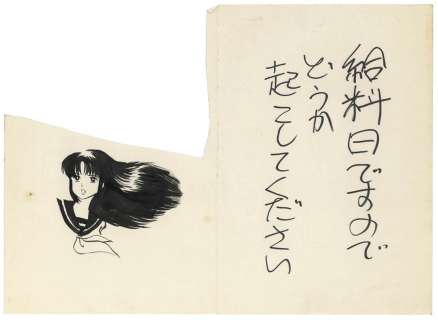 給料日ですので
どうか
起こしてください